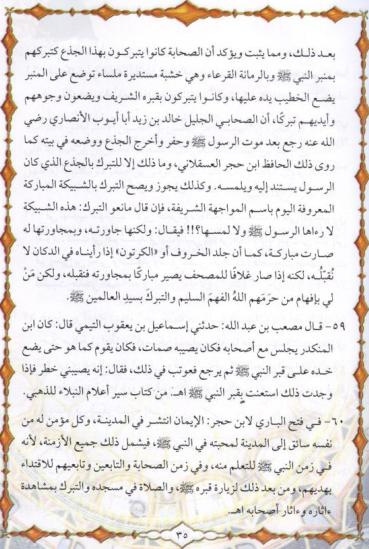 بعد ذلك، ومما يثبت ويؤكد أن الصحابة كانوا يتبركون بهذا الجذع كتبركهم
بمنبر النبي ﷺ وبالرمانة القرعاء وهي خشبة مستديرة ملساء توضع على المنبر
يضع الخطيب يده عليها، وكانوا يتبركون بقبره الشريف ويضعون وجوههم
وأيديهم تبركًا، أن الصحابي الجليل خالد بن زيد أبا أيوب الأنصاري رضي
الله عنه رجع بعد موت الرسول ﷺ وحفر وأخرج الجذع ووضعه في بيته كما
روى ذلك الحافظ ابن حجر العسقلاني، وما ذلك إلا للتبرك بالجذع الذي كان
الرسول يستند إليه ويلمسه. وكذلك يجوز ويصح التبرك بالشبيكة المباركة
المعروفة اليوم باسم المواجهة الشريفة، فإن قال مانعو التبرك: هذه الشبيكة
لا رءاها الرسول ﷺ ولا لمسها؟!! فيقال: ولكنها جاورته، وبمجاورتها له
صارت مباركة، كما أن جلد الخروف أو «الكرتون» إذا رأيناه في الدكان لا
نُقبّلُه، لكنه إذا صار غلافًا للمصحف يصير مباركًا بمجاورته فنقبله، ولكن مَنْ
لي بإفهام من حرَمَهم اللهُ الفهمَ السليم والتبركَ بسيدِ العالمين ﷺ.
٥٩- قال مصعب بن عبد الله: حدثني إسماعيل بن يعقوب التيمي قال: كان ابن
المنكدر يجلس مع أصحابه فكان يصيبه صمات، فكان يقوم كما هو حتى يضع
خده على قبر النبي ﷺ ثم يرجع فعوتب في ذلك، فقال: إنه يصيبني خطر فإذا
وجدت ذلك استعنت بقبر النبي ﷺ اهـ من كتاب سير أعلام النبلاء للذهبي.
٦٠- في فتح الباري لابن حجر: الإيمان انتشر في المدينة، وكل مؤمن له من
نفسه سائق إلى المدينة لمحبته في النبي ﷺ، فيشمل ذلك جميع الأزمنة، لأنه
في زمن النبي ﷺ للتعلم منه، وفي زمن الصحابة والتابعين وتابعيهم للاقتداء
بهديهم، ومن بعد ذلك لزيارة قبره ﷺ، والصلاة في مسجده والتبرك بمشاهدة
ءاثاره وءاثار أصحابه اهـ
٣٥